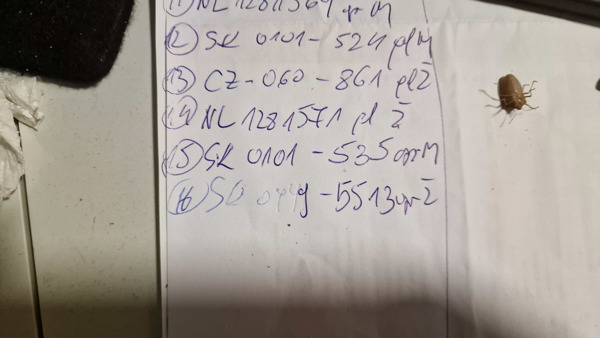 12 SK 0101-524 plM
13 CZ-060-861 plŽ
14 NL 1281571 pl Ž
15 SK 0101-535 oprM
16 SK 0449-5513 oprŽ